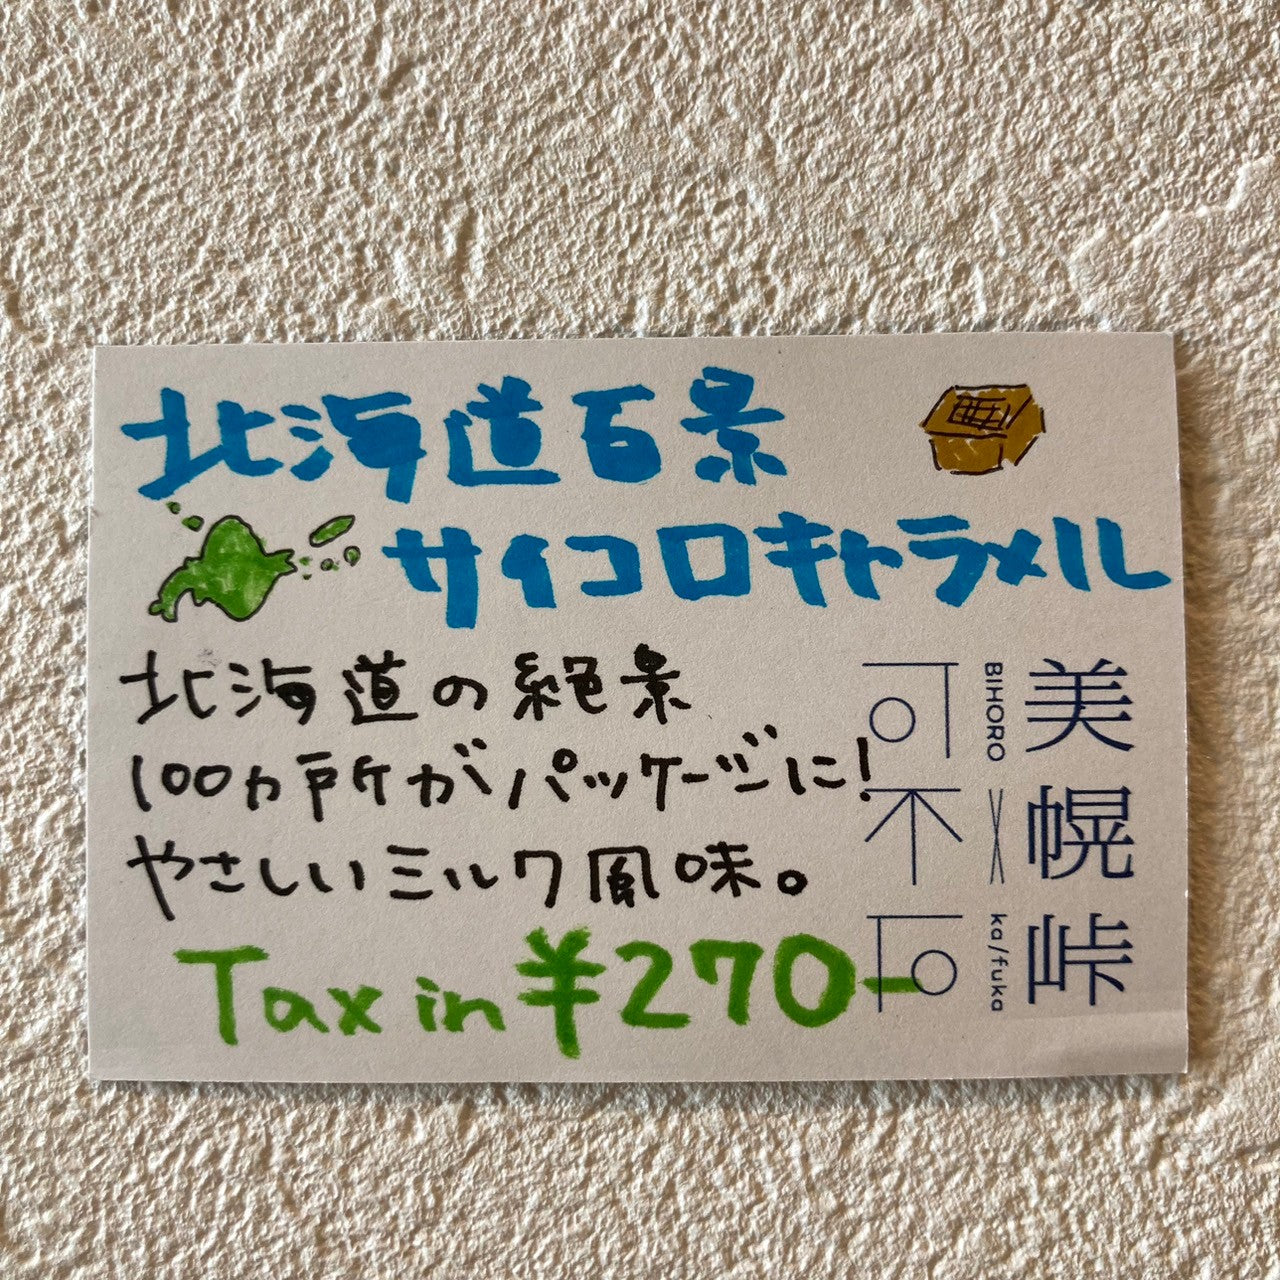 北海道百景
サイコロキャラメル
北海道の絶景
100カ所がパッケージに!
やさしいミルク風味。
Tax in ¥270-
美幌峠
BIHORO × ka/fuka
可不可